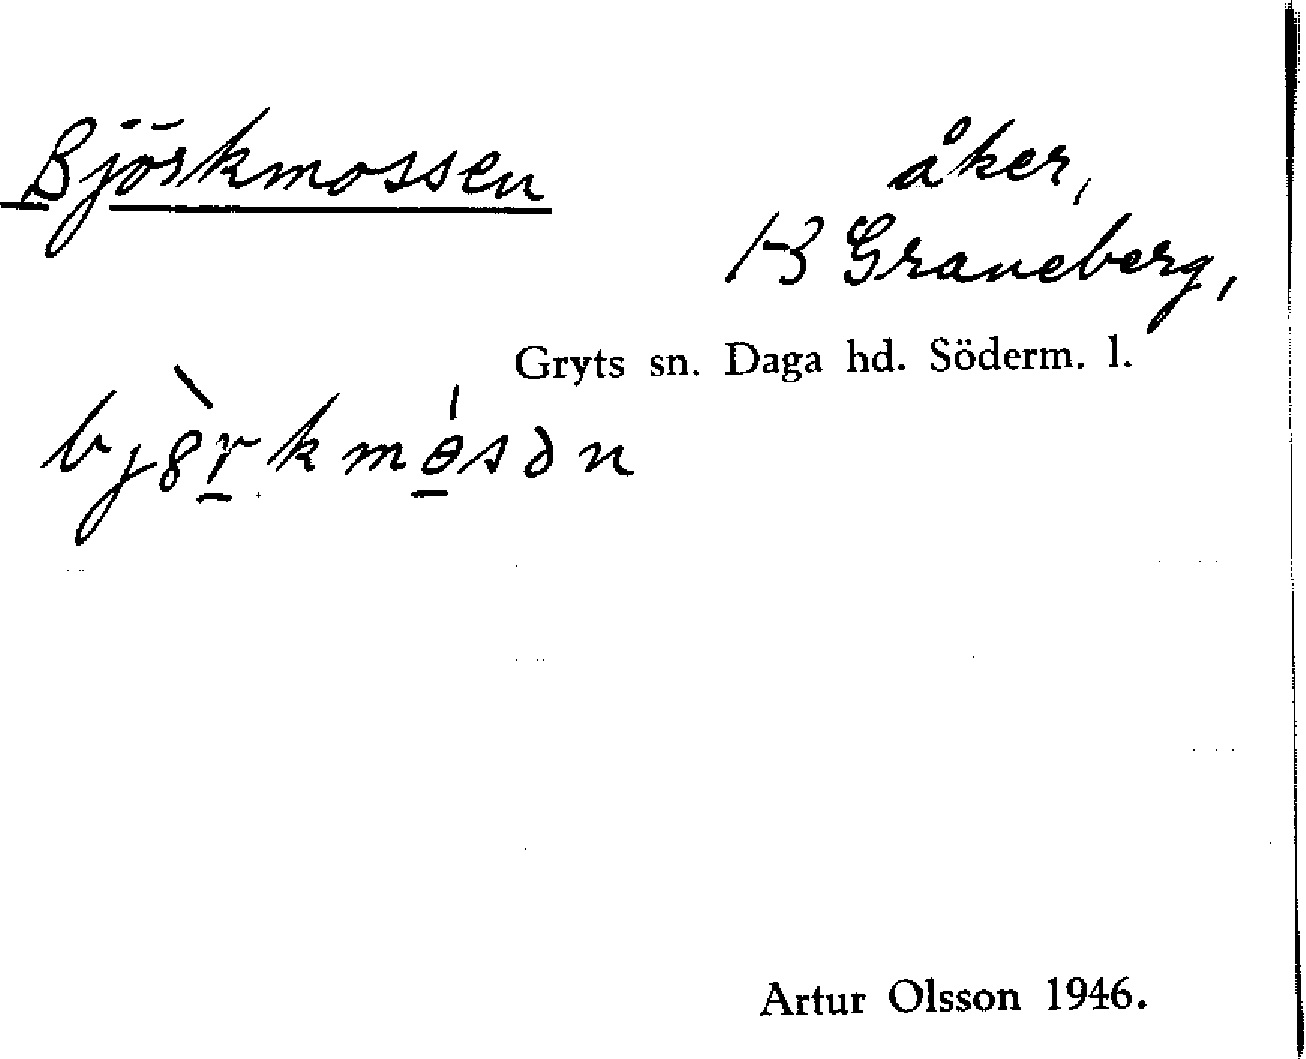 Björkmossen
åker,
1-3 Graneberg,
Gryts sn. Daga hd. Söderm. l.
Artur Olsson 1946.